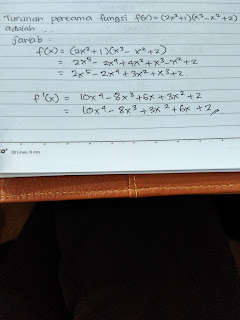 Turunan pertama fungsi f(x) = (2x²+1)(x³-x²+2)
adalah ...
Jawab :
f(x) = (2x²+1)(x³-x²+2)
= 2x⁵-2x⁴+4x²+x³-x²+2
= 2x⁵-2x⁴+3x²+x³+2
f'(x) = 10x⁴-8x³+6x+3x²+2
= 10x⁴-8x³+3x²+6x+2
30 Lines, 8 mm